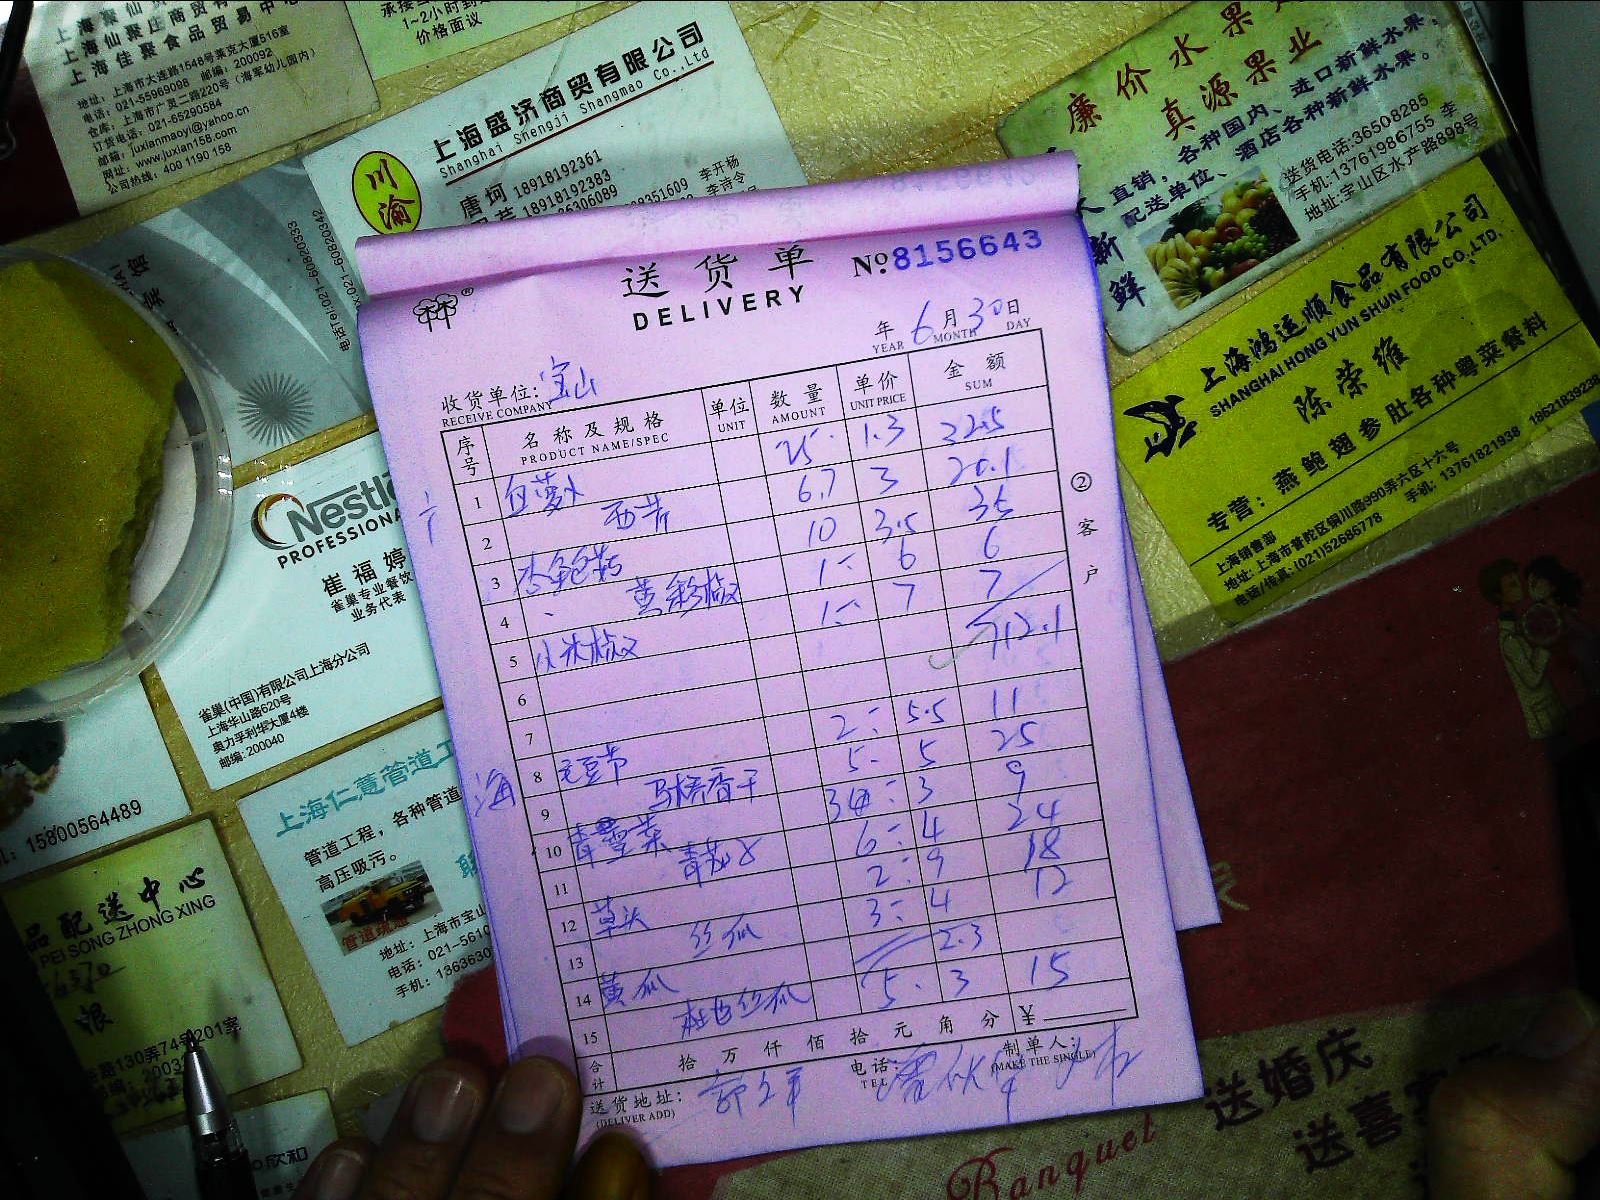 上海仙聚庄商贸有
上海佳聚食品贸易中心
地址：上海市大连路1548号莱克大厦516室
电话：021-55969098 邮编：200092
仓库：上海市广灵二路220号（海军幼儿园内）
订货电话：021-65290584
邮箱：juxianmaoyi@yahoo.cn
网址：www.juxian158.com
公司热线：400 1190 158
1~2小时到
价格面议
川渝
上海盛济商贸有限公司
Shanghai Shengji Shangmao Co.,Ltd
唐坷 18918192361
18918192383
李开杨
李诗令
廉价水果
真源果业
直销，各种国内、进口新鲜水果，
配送单位、酒店各种新鲜水果。
送货电话:36508285
手机:13761986755 李
地址:宝山区水产路898号
新鲜
上海鸿运顺食品有限公司
SHANGHAI HONG YUN SHUN FOOD CO.,LTD.
陈荣维
专营：燕鲍翅参肚各种粤菜餐料
上海销售部
地址: 上海市普陀区铜川路990弄六区十六号
电话/传真: (021)52686778 手机: 13761821938 18621839238
Nestl
PROFESSIONA
崔福婷
雀巢专业餐饮
业务代表
雀巢(中国)有限公司上海分公司
上海华山路620号
奥力孚利华大厦4楼
邮编: 200040
15800564489
上海仁薏管道工
管道工程，各种管道
高压吸污。
管道疏通
地址：上海市宝山
电话：021-5610
手机：136363
品配送中心
PEI SONG ZHONG XING
路130弄74号201室
欣和
送货单
DELIVERY
No.8156643
年 6月30日
YEAR MONTH DAY
收货单位：宝山
RECEIVE COMPANY
序号 名称及规格 单位 数量 单价 金额
PRODUCT NAME/SPEC UNIT AMOUNT UNIT PRICE SUM
1 白萝卜 25 1.3 32.5
2 西芹 6.7 3 20.1
3 杏鲍菇 10 3.5 35
4 黄彩椒 1 6 6
5 小米椒 1 7 7
6
7
8 毛豆节 2 5.5 11
9 马桥香干 5 5 25
10 3 9
11 青茄子 6 4 24
12 草头 2 9 18
13 丝瓜 3 4 12
14 黄瓜 2.3
15 本地丝瓜 5 3 15
合计 拾 万 仟 佰 拾 元 角 分 ￥
送货地址：
(DELIVER ADD)
电话：
TEL
制单人：
(MAKE THE SINGLE)
②客户
海
Banquet
送婚庆
送喜